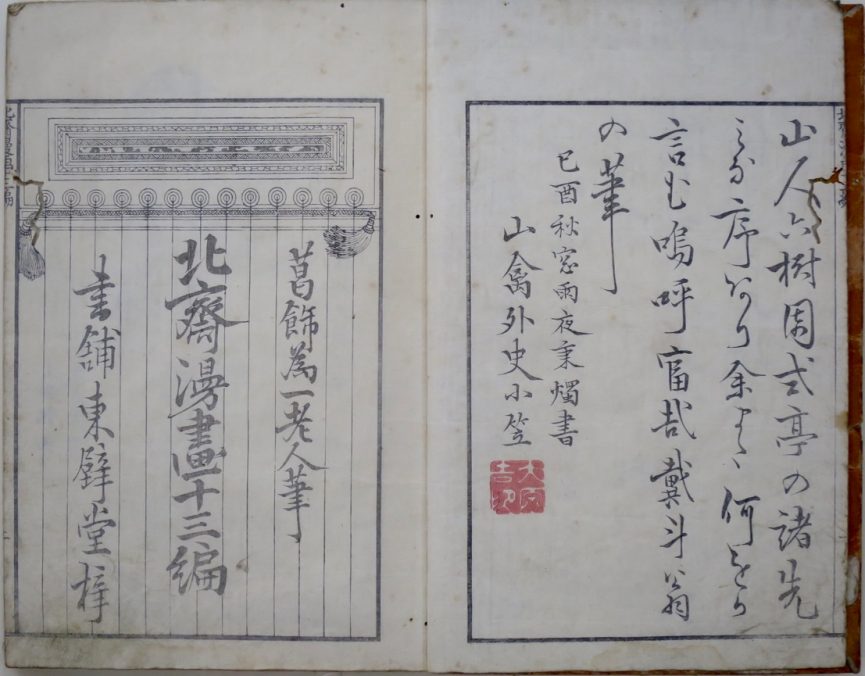 山人六樹園式亭の諸先
みな序あり余また何をか
言む嗚呼富哉戴斗翁
の筆
己酉秋窓雨夜秉燭書
山禽外史小笠
葛飾為一老人筆
北齋漫畫十三編
書舗東壁堂梓